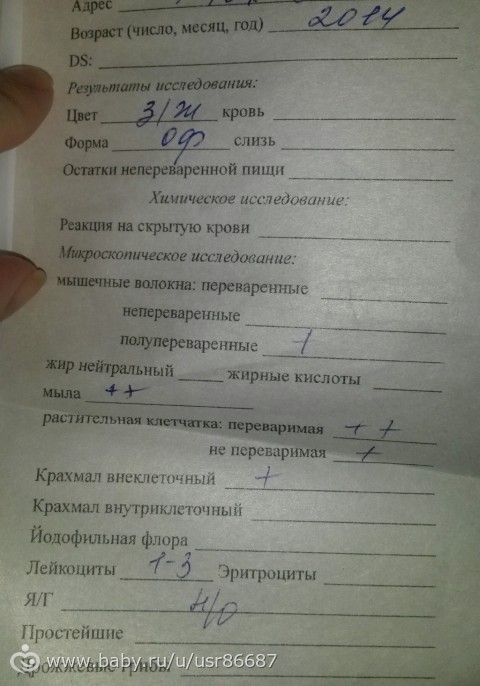 Адрес
Возраст (число, месяц, год) 2014
DS:
Результаты исследования:
Цвет З/Ж кровь
Форма оф слизь
Остатки непереваренной пищи
Химическое исследование:
Реакция на скрытую крови
Микроскопическое исследование:
мышечные волокна: переваренные
непереваренные
полупереваренные
жир нейтральный жирные кислоты
мыла ++
растительная клетчатка: переваримая ++
не переваримая +
Крахмал внеклеточный +
Крахмал внутриклеточный
Йодофильная флора
Лейкоциты 1-3 Эритроциты
Я/Г н/о
Простейшие
Дрожжевые грибы
www.baby.ru/u/usr86687